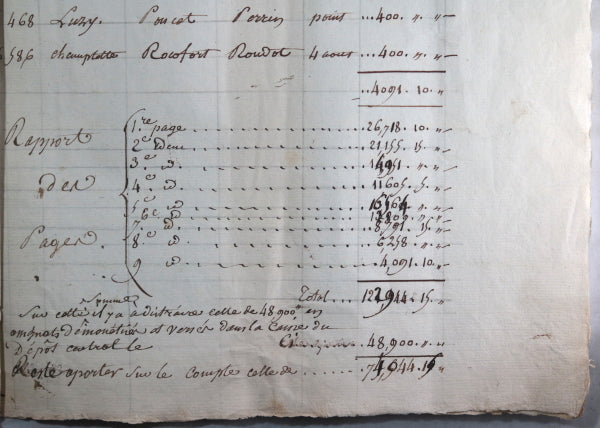 468 Luzy. Poucet Perrin point ..400. " "
586 champlotte Rocofort Roudot 4 aout ..400. " "
..4091. 10. "
Rapport des Pages.
1re page 26,718. 10. "
2e Idem 21,155. 15. "
3e id
4e id 11605. 5. "
5e id
6e id
7e id 8,791. 15
8e id 6,258. " "
9 id 4,091. 10. "
Total 122,944. 15. "
Sur cette somme il y a à distraire celle de 48,900 " en
assignats démonétisés et versés dans la Caisse du
Dépôt central le 48,900. " "
Reste aporter sur le compte celle de 74,044. 15 "